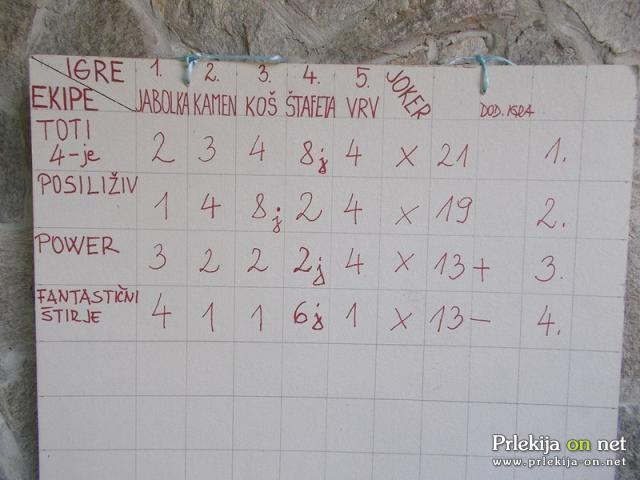 IGRE 1. 2. 3. 4. 5. JOKER
EKIPE JABOLKA KAMEN KOŠ ŠTAFETA VRV DOD. IGRA
TOTI
4-je 2 3 4 8j 4 x 21 1.
POSILIŽIV 1 4 8j 2 4 x 19 2.
POWER 3 2 2 2j 4 x 13+ 3.
FANTASTIČNI
ŠTIRJE 4 1 1 6j 1 x 13- 4.
Prlekija on net
www.prlekija-on.net